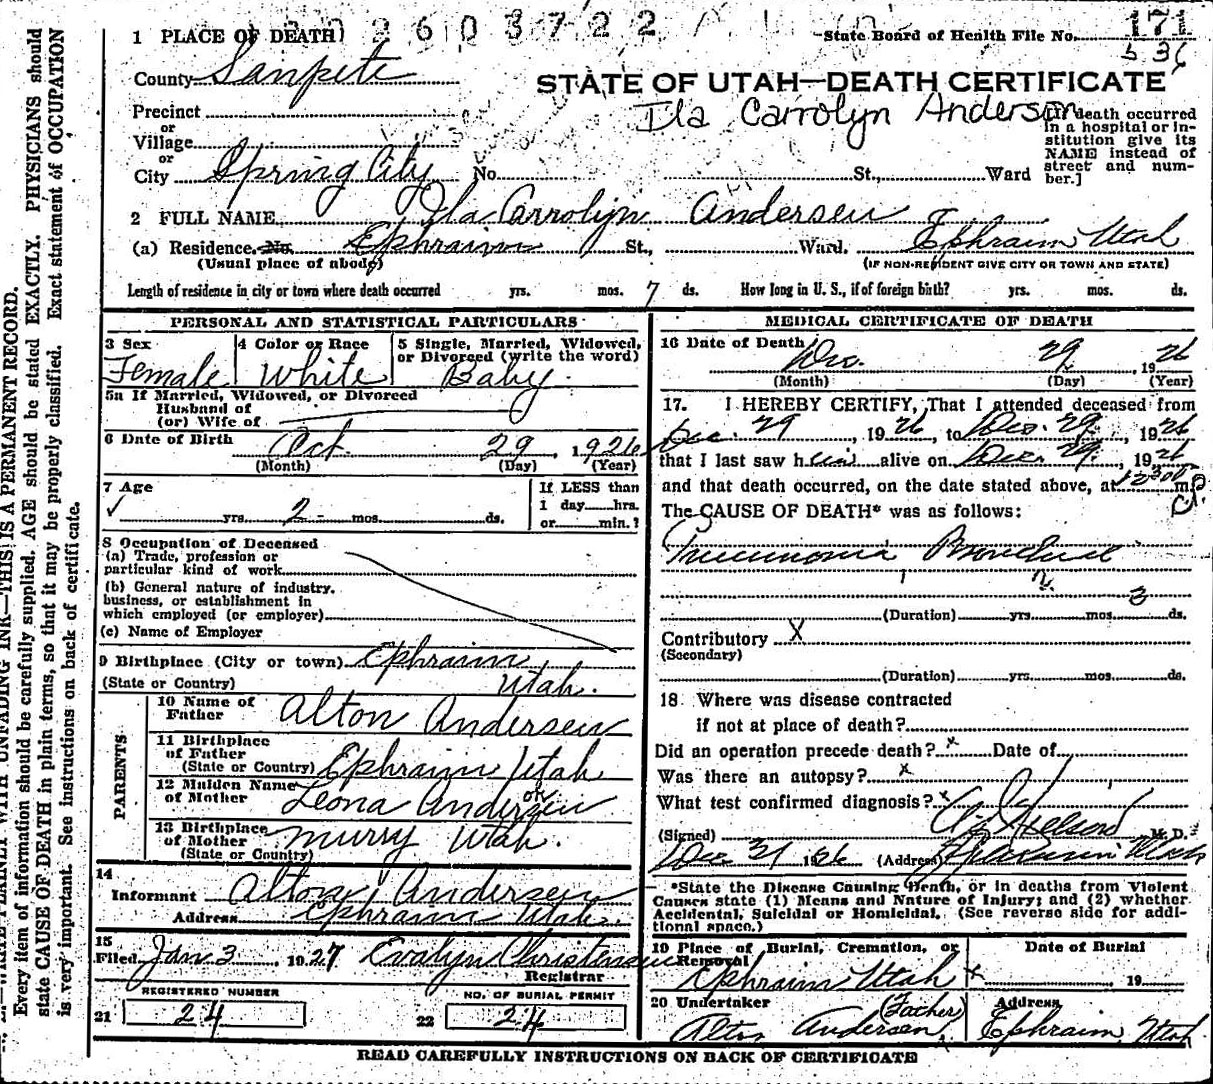 2603722
1 PLACE OF DEATH
State Board of Health File No. 171
536
County Sanpete
STATE OF UTAH—DEATH CERTIFICATE
Ila Carrolyn Anderson
Precinct
or
Village
or
City Spring City No. St., Ward
[If death occurred
in a hospital or in-
stitution give its
NAME instead of
street and num-
ber.]
2 FULL NAME Ila Carrolyn Andersen
(a) Residence. No. Ephraim St., Ward. Ephraim Utah
(Usual place of abode) (IF NON-RESIDENT GIVE CITY OR TOWN AND STATE)
Length of residence in city or town where death occurred yrs. mos. 7 ds. How long in U. S., if of foreign birth? yrs. mos. ds.
PERSONAL AND STATISTICAL PARTICULARS
3 Sex 4 Color or Race 5 Single, Married, Widowed,
or Divorced (write the word)
Female White Baby
5a If Married, Widowed, or Divorced
Husband of
(or) Wife of
6 Date of Birth Oct. 29 1926
(Month) (Day) (Year)
7 Age If LESS than
1 day hrs.
yrs. 2 mos. ds. or min.?
8 Occupation of Deceased
(a) Trade, profession or
particular kind of work
(b) General nature of industry,
business, or establishment in
which employed (or employer)
(c) Name of Employer
9 Birthplace (City or town) Ephraim,
(State or Country) Utah.
PARENTS
10 Name of
Father Alton Andersen
11 Birthplace
of Father
(State or Country) Ephraim Utah
12 Maiden Name
of Mother Leona Andersen
on
13 Birthplace
of Mother Murry Utah.
(State or Country)
14
Informant Alton Andersen
Address Ephraim Utah.
15
Filed Jan 3, 1927 Evalyn Christensen
Registrar
REGISTERED NUMBER NO. OF BURIAL PERMIT
21 24 22 24
MEDICAL CERTIFICATE OF DEATH
16 Date of Death Dec. 29, 1926
(Month) (Day) (Year)
17. I HEREBY CERTIFY, That I attended deceased from
Dec. 29, 1926, to Dec. 29, 1926
that I last saw h alive on Dec. 29, 1926
and that death occurred, on the date stated above, at m.
The CAUSE OF DEATH* was as follows:
Pneumonia
(Duration) yrs. mos. 3 ds.
Contributory X
(Secondary)
(Duration) yrs. mos. ds.
18 Where was disease contracted
if not at place of death?
Did an operation precede death? x Date of
Was there an autopsy? x
What test confirmed diagnosis? x
(Signed) M. D.
Dec 31 1926 (Address) Ephraim Utah
*State the Disease Causing Death, or in deaths from Violent
Causes state (1) Means and Nature of Injury; and (2) whether
Accidental, Suicidal or Homicidal. (See reverse side for addi-
tional space.)
19 Place of Burial, Cremation, or
Removal Date of Burial
Ephraim Utah x 19
20 Undertaker (Father) Address
Alton Andersen Ephraim, Utah
READ CAREFULLY INSTRUCTIONS ON BACK OF CERTIFICATE
WRITE PLAINLY WITH UNFADING INK—THIS IS A PERMANENT RECORD.
Every item of information should be carefully supplied. AGE should be stated EXACTLY. PHYSICIANS should
state CAUSE OF DEATH in plain terms, so that it may be properly classified. Exact statement of OCCUPATION
is very important. See instructions on back of certificate.